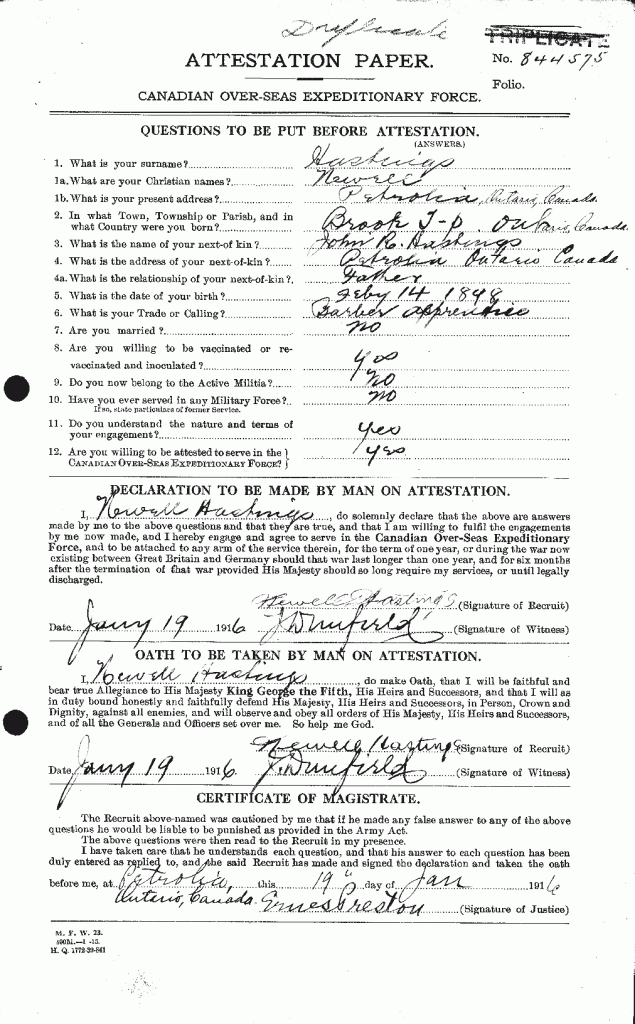 Duplicate
TRIPLICATE
ATTESTATION PAPER.
No. 844575
Folio.
CANADIAN OVER-SEAS EXPEDITIONARY FORCE.
QUESTIONS TO BE PUT BEFORE ATTESTATION.
(ANSWERS.)
1. What is your surname? Hastings
1a. What are your Christian names? Newell
1b. What is your present address? Petrolia, Ontario, Canada.
2. In what Town, Township or Parish, and in
what Country were you born? Brook T-p. Ontario, Canada.
3. What is the name of your next-of kin? John R. Hastings
4. What is the address of your next-of-kin? Petrolia Ontario Canada
4a. What is the relationship of your next-of-kin? Father
5. What is the date of your birth? Feby 14 1898
6. What is your Trade or Calling? Barber apprentice
7. Are you married? no
8. Are you willing to be vaccinated or re-
vaccinated and inoculated? yes
9. Do you now belong to the Active Militia? no
10. Have you ever served in any Military Force? no
If so, state particulars of former Service.
11. Do you understand the nature and terms of
your engagement? yes
12. Are you willing to be attested to serve in the
CANADIAN OVER-SEAS EXPEDITIONARY FORCE? yes
DECLARATION TO BE MADE BY MAN ON ATTESTATION.
I, Newell Hastings, do solemnly declare that the above are answers
made by me to the above questions and that they are true, and that I am willing to fulfil the engagements
by me now made, and I hereby engage and agree to serve in the Canadian Over-Seas Expeditionary
Force, and to be attached to any arm of the service therein, for the term of one year, or during the war now
existing between Great Britain and Germany should that war last longer than one year, and for six months
after the termination of that war provided His Majesty should so long require my services, or until legally
discharged.
Newell Hastings (Signature of Recruit)
Date Jany 19 1916 (Signature of Witness)
OATH TO BE TAKEN BY MAN ON ATTESTATION.
I, Newell Hastings, do make Oath, that I will be faithful and
bear true Allegiance to His Majesty King George the Fifth, His Heirs and Successors, and that I will as
in duty bound honestly and faithfully defend His Majesty, His Heirs and Successors, in Person, Crown and
Dignity, against all enemies, and will observe and obey all orders of His Majesty, His Heirs and Successors,
and of all the Generals and Officers set over me. So help me God.
Newell Hastings (Signature of Recruit)
Date Jany 19 1916. (Signature of Witness)
CERTIFICATE OF MAGISTRATE.
The Recruit above-named was cautioned by me that if he made any false answer to any of the above
questions he would be liable to be punished as provided in the Army Act.
The above questions were then read to the Recruit in my presence.
I have taken care that he understands each question, and that his answer to each question has been
duly entered as replied to, and the said Recruit has made and signed the declaration and taken the oath
before me, at Petrolia, this 19 day of Jan 1916
Ontario, Canada. Ernest Preston (Signature of Justice)
M. F. W. 23.
H. Q. 1772-39-841